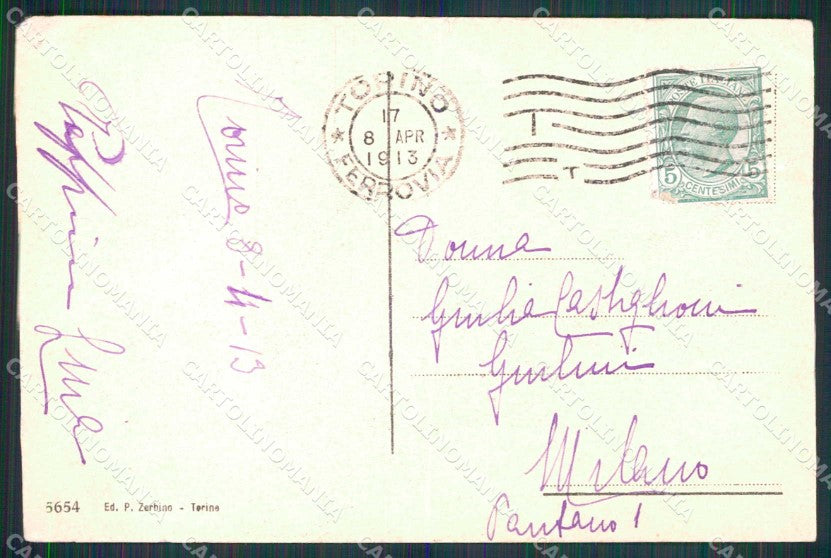 TORINO
17
8 APR
1913
FERROVIA
I
T
5 CENTESIMI 5
Torino 8-4-13
Donna
Giulia Castiglioni
Giulini
Milano
Pantano 1
5654 Ed. P. Zerbino - Torino
CARTOLINOMANIA